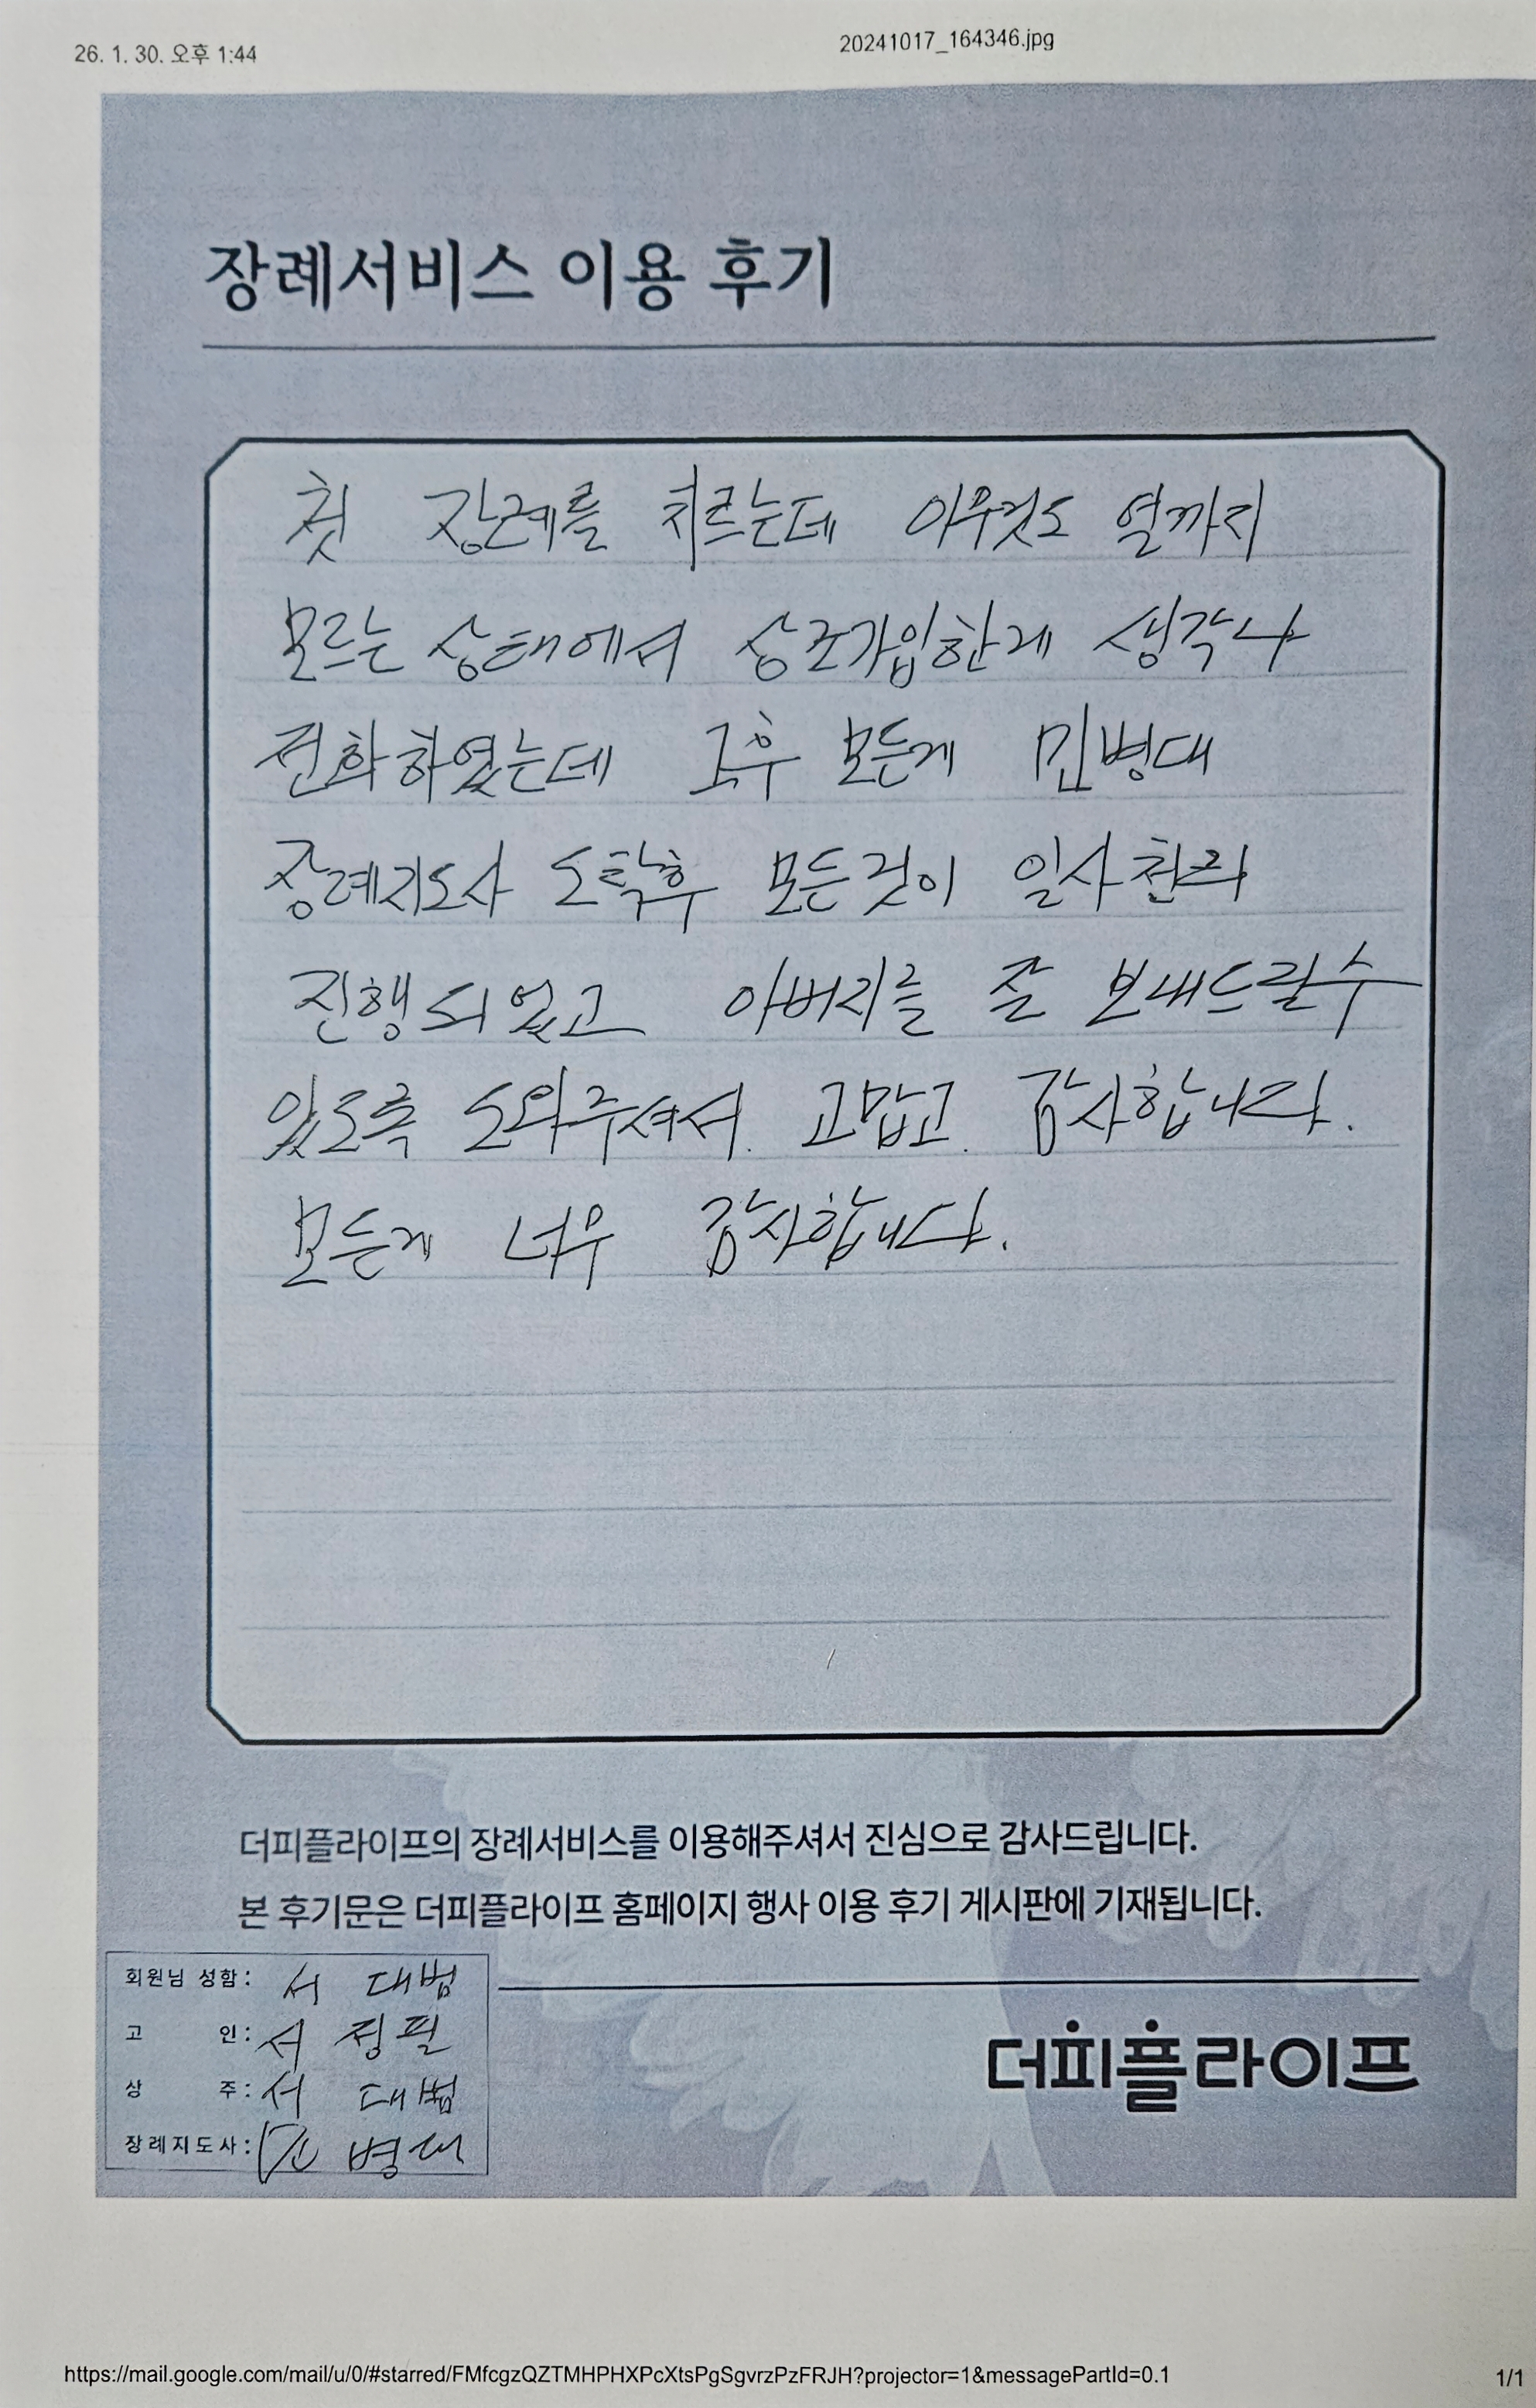 26. 1. 30. 오후 1:44
20241017_164346.jpg
장례서비스 이용 후기
첫 장례를 치르는데 아무것도 열까지
모르는 상태에서 상조가입한게 생각나
전화하였는데 그후 모든게 민병대
장례지도사 도착후 모든것이 일사천리
진행되었고 아버지를 잘 보내드릴수
있도록 도와주셔서. 고맙고. 감사합니다.
모든게 너무 감사합니다.
더피플라이프의 장례서비스를 이용해주셔서 진심으로 감사드립니다.
본 후기문은 더피플라이프 홈페이지 행사 이용 후기 게시판에 기재됩니다.
회원님 성함: 서 대범
고 인: 서 정필
상 주: 서 대범
장례지도사: 민 병대
더피플라이프
https://mail.google.com/mail/u/0/#starred/FMfcgzQZTMHPHXPcXtsPgSgvrzPzFRJH?projector=1&messagePartId=0.1
1/1